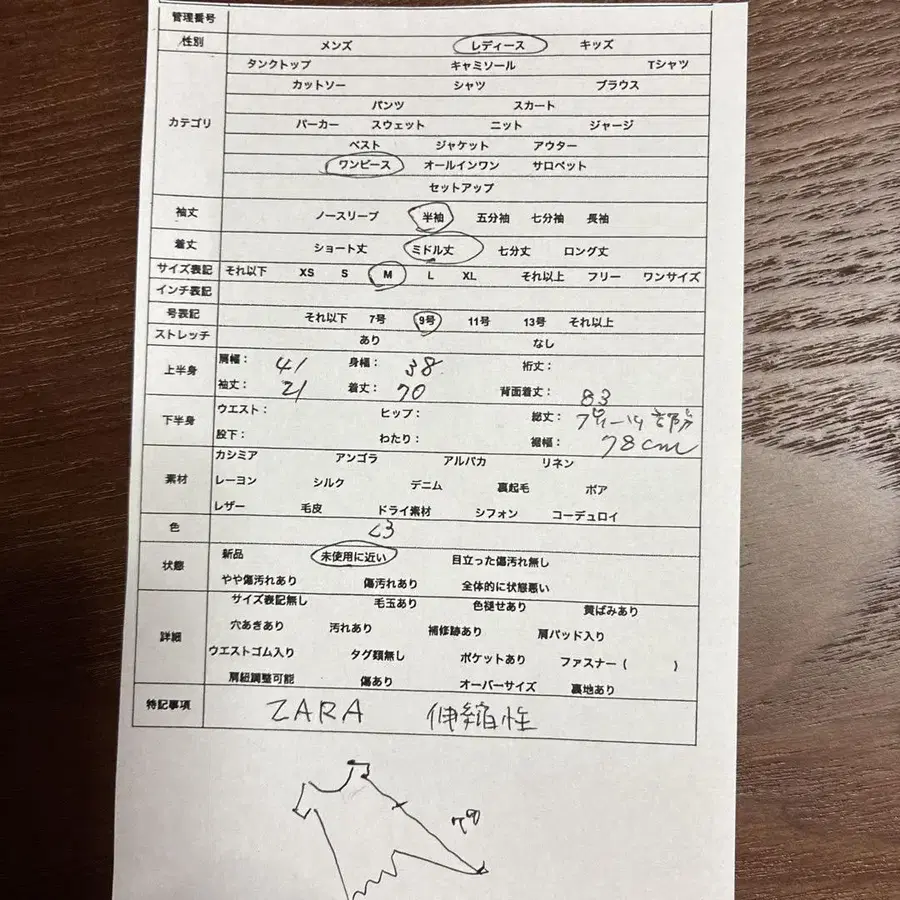 管理番号
性別 メンズ レディース キッズ
タンクトップ キャミソール Tシャツ
カットソー シャツ ブラウス
パンツ スカート
カテゴリ パーカー スウェット ニット ジャージ
ベスト ジャケット アウター
ワンピース オールインワン サロペット
セットアップ
袖丈 ノースリーブ 半袖 五分袖 七分袖 長袖
着丈 ショート丈 ミドル丈 七分丈 ロング丈
サイズ表記 それ以下 XS S M L XL それ以上 フリー ワンサイズ
インチ表記
号表記 それ以下 7号 9号 11号 13号 それ以上
ストレッチ あり なし
上半身 肩幅: 41 身幅: 38 裄丈:
袖丈: 21 着丈: 70 背面着丈: 83
下半身 ウエスト: ヒップ: 総丈:
股下: わたり: 裾幅: 78cm
カシミア アンゴラ アルパカ リネン
素材 レーヨン シルク デニム 裏起毛 ボア
レザー 毛皮 ドライ素材 シフォン コーデュロイ
色
状態 新品 未使用に近い 目立った傷汚れ無し
やや傷汚れあり 傷汚れあり 全体的に状態悪い
サイズ表記無し 毛玉あり 色褪せあり 黄ばみあり
詳細 穴あきあり 汚れあり 補修跡あり 肩パッド入り
ウエストゴム入り タグ類無し ポケットあり ファスナー ( )
肩紐調整可能 傷あり オーバーサイズ 裏地あり
特記事項 ZARA 伸縮性